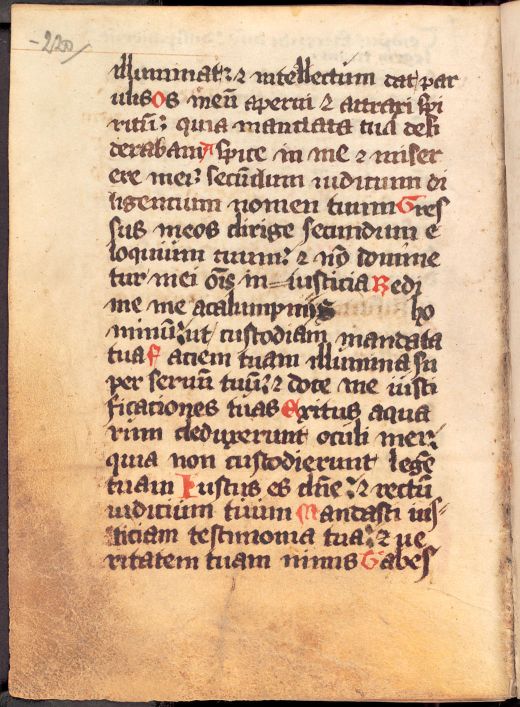 -220
illuminat: ⁊ intellectum dat par
ulis Os meū aperui ⁊ attraxi spi
ritū: quia mandata tua desi
derabam Aspice in me ⁊ miser
ere mei: secūdum iudicium di
ligentium nomen tuum Gres
sus meos dirige secundum e
loquium tuum: ⁊ nō domine
tur mei ōis in=iusticia Redi
me me acalumpniis ho
minū: ut custodiam mandata
tua Faciem tuam illumina su
per seruū tuū: ⁊ doce me iusti
ficationes tuas Exitus aqua
rum deduxerunt oculi mei:
quia non custodierunt legē
tuam Iustus es dn̄e: ⁊ rectū
iudicium tuum Mandasti ius=
ticiam testimonia tua: ⁊ ue
ritatem tuam nimis Gabes